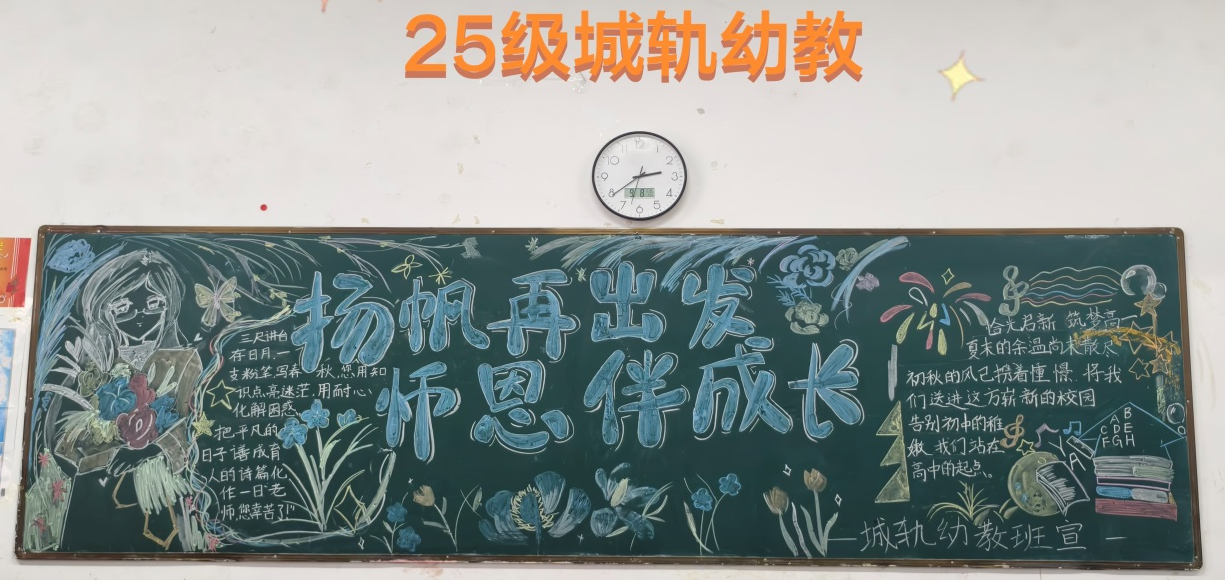 25级城轨幼教
扬帆再出发
师恩伴成长
三尺讲台
存日月,一
支粉笔写春秋,您用知
识点亮迷茫,用耐心
化解困惑
把平凡的
日子谱成育
人的诗篇化
作一日"老
师,您辛苦了"
拾光启新 筑梦高一
夏末的余温尚未散尽
初秋的风已携着憧憬 将我
们送进这方崭新的校园
告别初中的稚
嫩,我们站在
高中的起点。
A B
C D E
F G H
YA
一城轨幼教班宣一